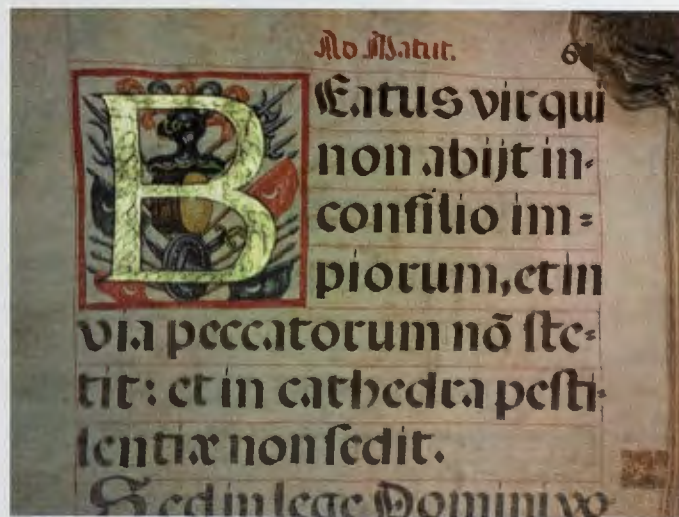 Ad Matut.
6
BEatus vir qui
non abijt in-
consilio im=
piorum, et in
via peccatorum nõ ste=
tit: et in cathedra pesti-
lentiæ non sedit.
Sed in lege Domini vo-